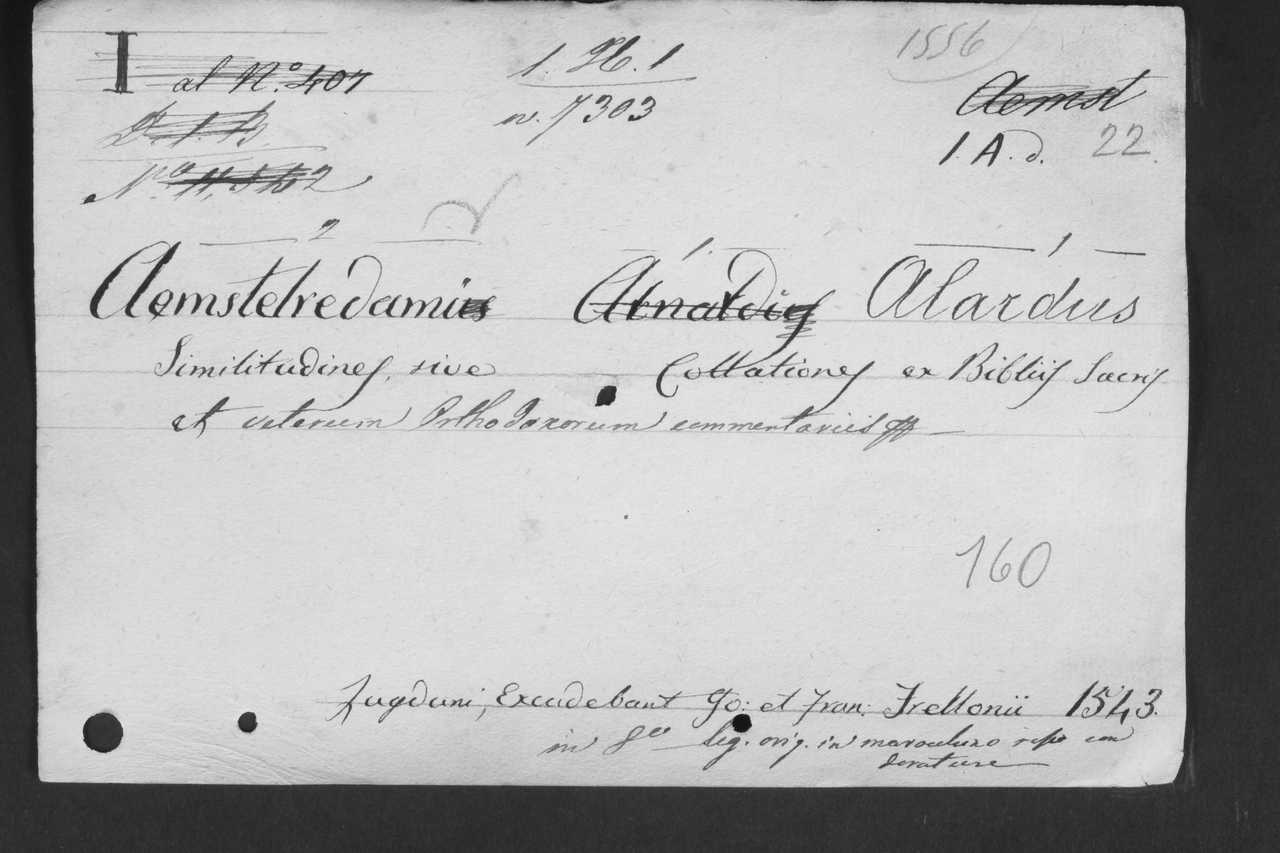 I al N.º 407
1. H. 1
1556
n. 7303
Aemst
1. A. d. 22.
2 1. 1
Aemstelredamus Arnaldus Alardus
Similitudines, sive Collationes ex Bibliis Sacris
et veterum Orthodoxorum commentariis
160
Lugduni, Excudebant Jo: et Fran: Frellonii 1543.
in 8º leg. orig. in con
dorature